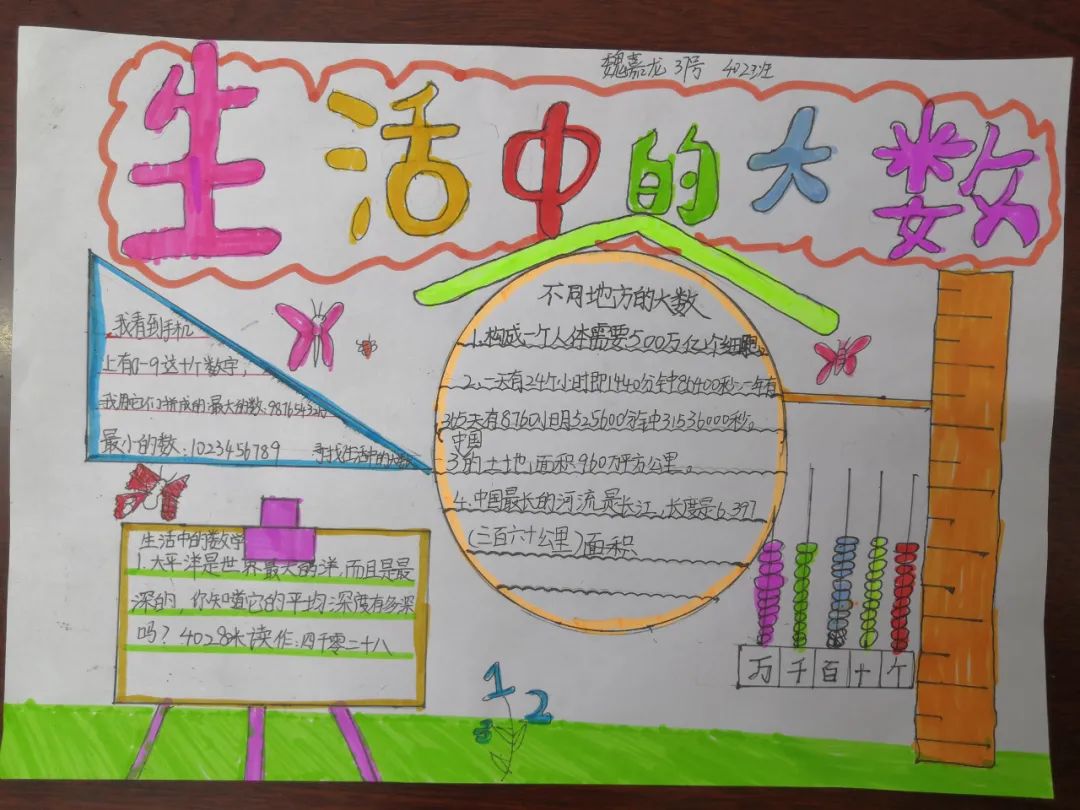 魏嘉龙 31号 4023班
生活中的大数
我看到手机
上有0-9这十个数字,
我用它们拼成的最大的数:9876543210
最小的数:1023456789 寻找生活中的大数
不同地方的大数
1.构成一个人体需要500万亿个细胞。
2.一天有24个小时即1440分钟86400秒;一年有
365天有8760小时525600分钟31536000秒。
中国
3的土地,面积960万平方公里。
4.中国最长的河流是长江,长度是6.397
(三百六十公里)面积
生活中的数学
1.太平洋是世界最大的洋,而且是最
深的,你知道它的平均深度有多深
吗?4028米读作:四千零二十八
万千百十个
1
2
3